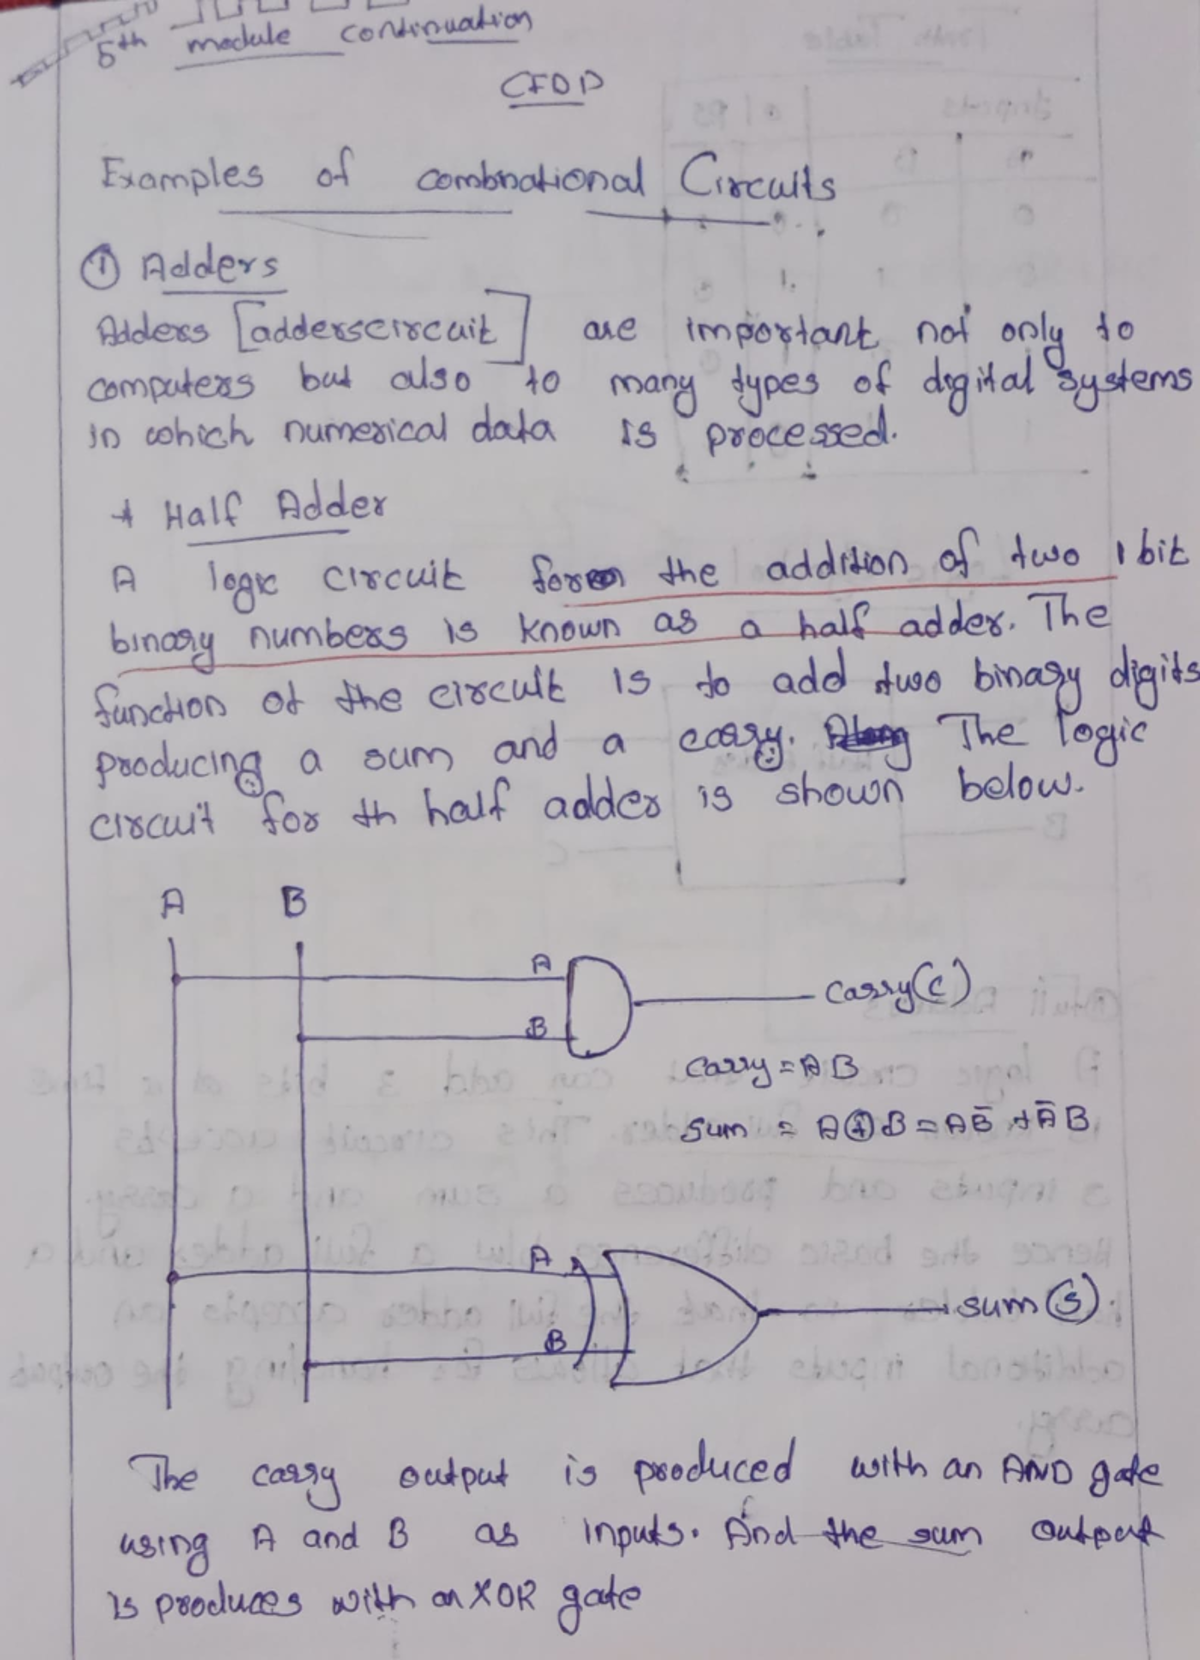 5th module continuation
CFOD
Examples of combnational Circuits
① Adders
Adders [adderscircuit] are important not only to
computers but also to many types of digital systems
in which numerical data is processed.
* Half Adder
A logic circuit for the addition of two 1 bit
binary numbers is known as a half adder. The
function of the circuit is to add two binary digits
producing a sum and a carry. The logic
circuit for th half adder is shown below.
A B
A
B
carry(C)
carry = AB
sum = A⊕B = AB̄ + ĀB
A
B
sum(S)
The carry output is produced with an AND gate
using A and B as inputs. And the sum output
is produces with an XOR gate